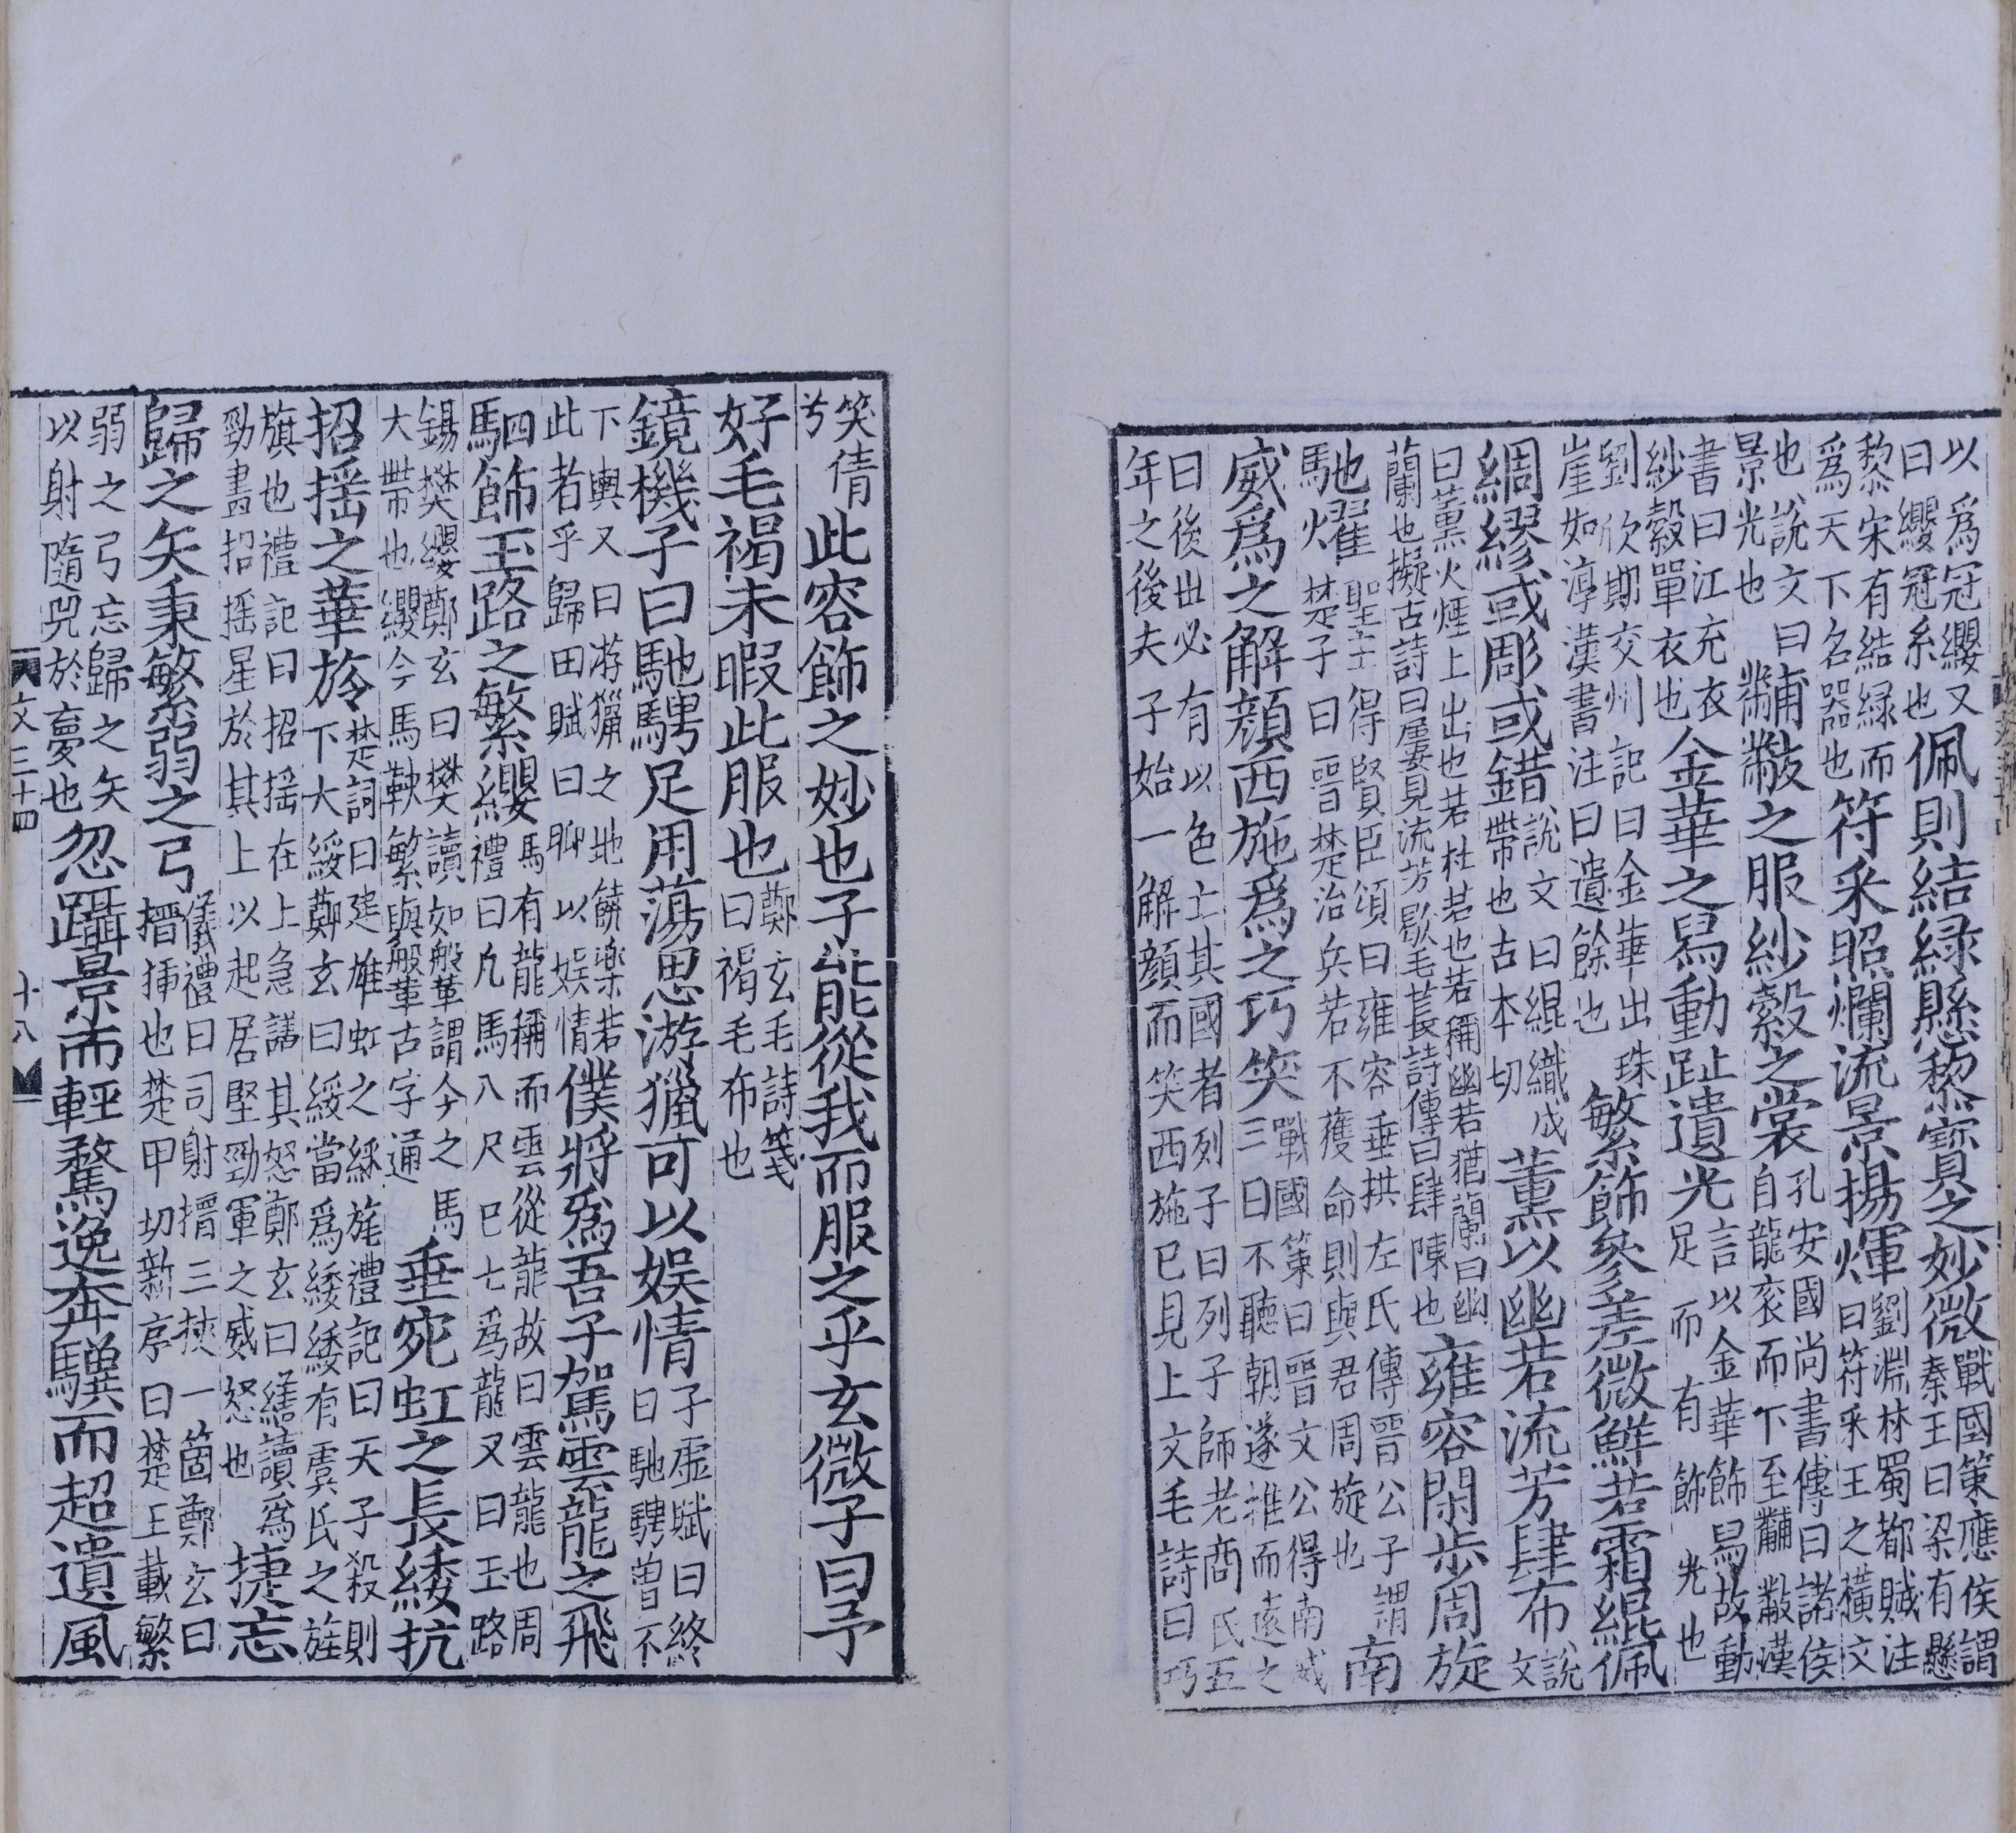 以爲冠纓又曰纓冠系也佩則結緑懸黎寶之妙微戰國策應侯謂秦王曰梁有懸
黎宋有結緑而爲天下名器也符采照爛流景揚煇劉淵林蜀都賦注曰符采玉之橫文
也說文曰景光也黼黻之服紗縠之裳孔安國尚書傳曰諸侯自龍衮而下至黼黻漢
書曰江充衣紗縠單衣也金華之舄動趾遺光言以金華飾舄故動足而有飾光也
劉欣期交州記曰金華出珠崖如淳漢書注曰遺餘也繁飾參差微鮮若霜緄佩
綢繆或彫或錯說文曰緄織成帶也古本切薰以幽若流芳肆布說文
曰薰火煙上出也若杜若也若稱幽若猶蘭曰幽蘭也擬古詩曰屢見流芳歇毛萇詩傳曰肆陳也雍容閑步周旋
馳燿聖主得賢臣頌曰雍容垂拱左氏傳晉公子謂楚子曰晉楚治兵若不獲命則與君周旋也南
威爲之解顔西施爲之巧笑戰國策曰晉文公得南威三日不聽朝遂推而遠之
曰後世必有以色亡其國者列子曰列子師老商氏五年之後夫子始一解顔而笑西施已見上文毛詩曰巧
笑倩兮此容飾之妙也子能從我而服之乎玄微子曰予
好毛褐未暇此服也鄭玄毛詩箋曰褐毛布也
鏡機子曰馳騁足用蕩思游獵可以娛情子虛賦曰終日馳騁曾不
下輿又曰游獵之地饒樂若此者乎歸田賦曰聊以娛情僕將爲吾子駕雲龍之飛
駟飾玉路之繁纓馬有龍稱而雲從龍故曰雲龍也周禮曰凡馬八尺已七爲龍又曰玉路
錫樊纓鄭玄曰樊讀如鞶革謂今之馬大帶也纓今馬鞅繁與鞶古字通垂宛虹之長緌抗
招摇之華旍楚詞曰建雄虹之綵旄禮記曰天子殺則下大綏鄭玄曰綏當爲緌緌有虞氏之旌
旗也禮記曰招摇在上急繕其怒鄭玄曰繕讀爲勁畫招摇星於其上以起居堅勁軍之威怒也捷忘
歸之矢秉繁弱之弓儀禮曰司射搢三挾一箇鄭玄曰搢挿也楚甲切新序曰楚王載繁
弱之弓忘歸之矢以射隨兕於夢也忽躡景而輕騖逸奔驥而超遺風
文三十四 十八